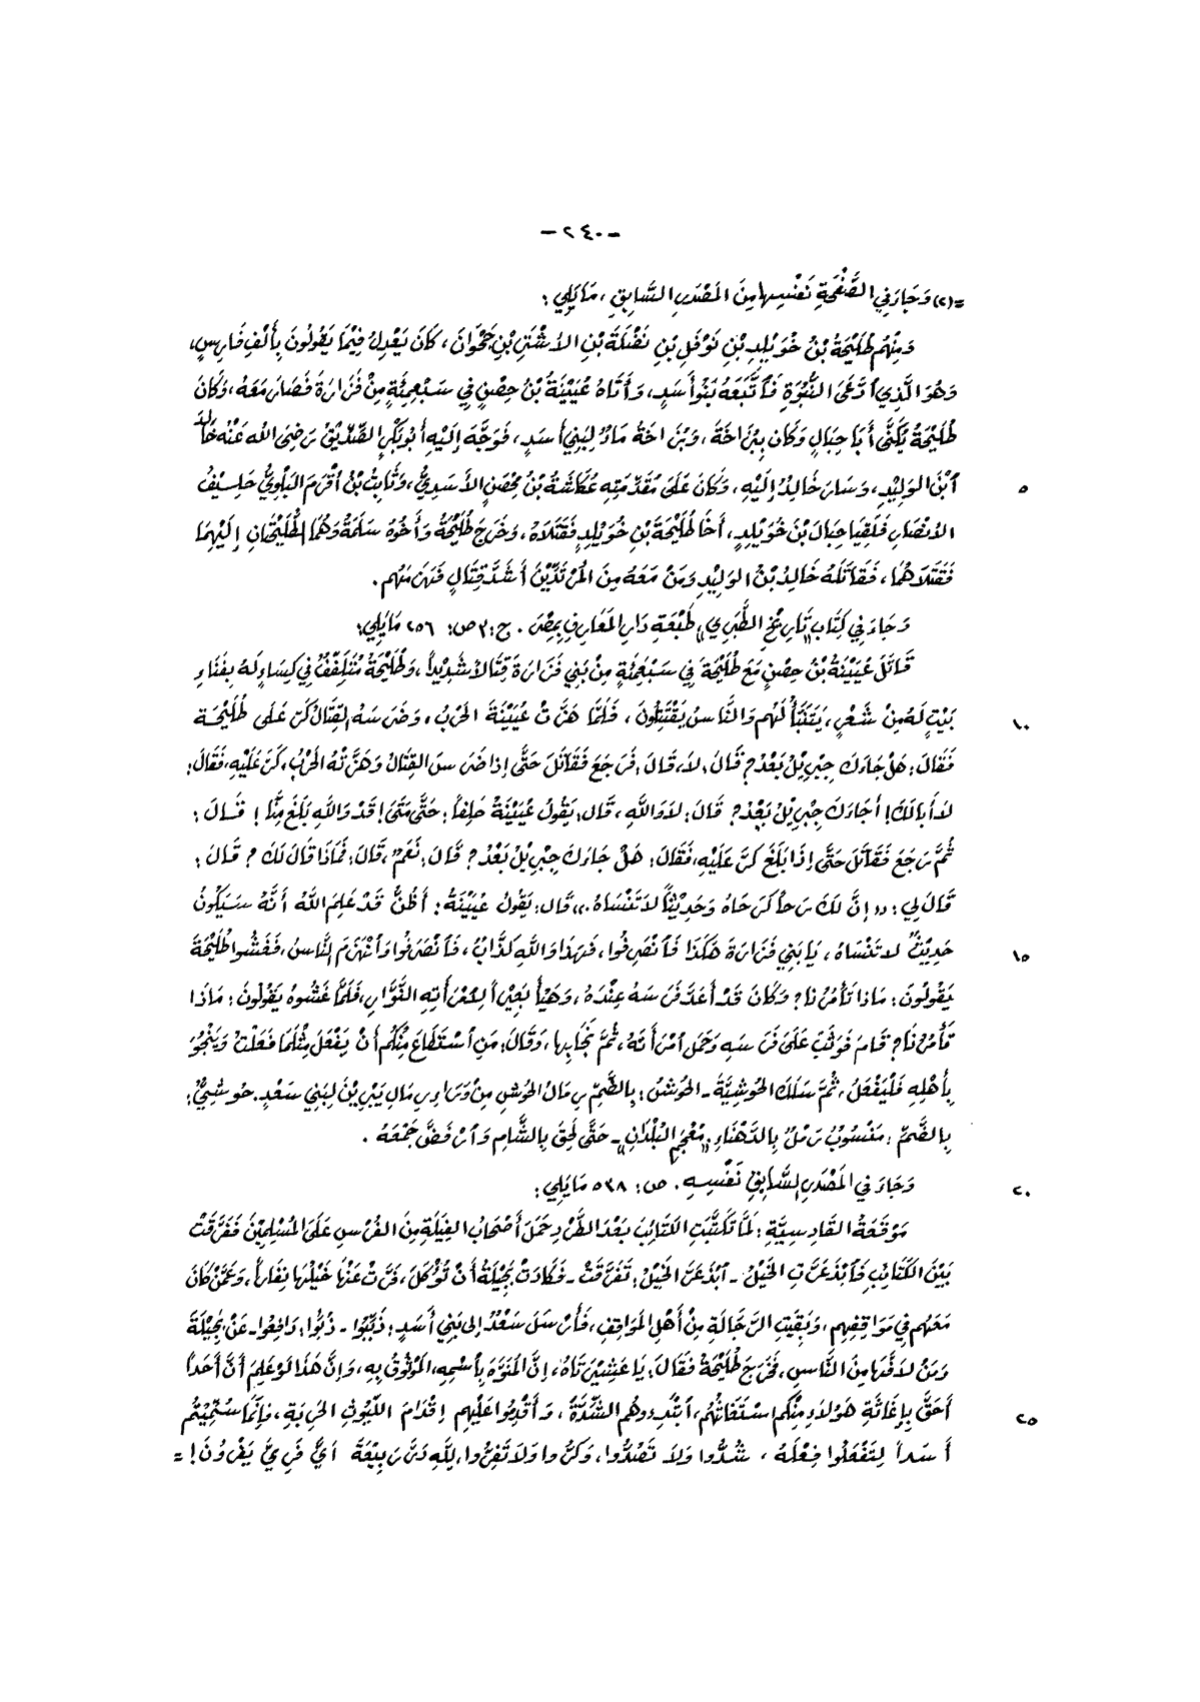 -٢٤٠-
=(٢) وَجَاءَ فِي الصَّفْحَةِ نَفْسِهَا مِنَ المَصْدَرِ السَّابِقِ، مَا يَلِي:
وَمِنْهُم طُلَيْحَةُ بْنُ خُوَيْلِدِ بْنِ نَوْفَلِ بْنِ نَضْلَةَ بْنِ الأَشْتَرِ بْنِ جَحْوَانَ، كَانَ يَعْدِلُ فِيْمَا يَقُولُونَ بِأَلْفِ فَارِسٍ،
وَهُوَ الَّذِي ٱدَّعَى النُّبُوَّةَ فَٱتَّبَعَهُ بَنُو أَسَدٍ، وَأَتَاهُ عُيَيْنَةُ بْنُ حِصْنٍ فِي سَبْعِمِئَةٍ مِنْ فَزَارَةَ فَصَارَ مَعَهُ، وَكَانَ
طُلَيْحَةُ يُكَنَّى أَبَا حِبَالٍ وَكَانَ بِبُزَاخَةَ، وَبُزَاخَةُ مَاءٌ لِبَنِي أَسَدٍ، فَوَجَّهَ إِلَيْهِ أَبُو بَكْرٍ الصِّدِّيْقُ رَضِيَ اللهُ عَنْهُ خَالِدَ
ٱبْنَ الوَلِيْدِ، وَسَارَ خَالِدٌ إِلَيْهِ، وَكَانَ عَلَى مُقَدِّمَتِهِ عُكَّاشَةُ بْنُ مِحْصَنٍ الأَسَدِيُّ، وَثَابِتُ بْنُ أَقْرَمَ البَلَوِيُّ حَلِيْفُ
٥
الأَنْصَارِ فَلَقِيَا حِبَالَ بْنَ خُوَيْلِدٍ، أَخَا طُلَيْحَةَ بْنِ خُوَيْلِدٍ فَقَتَلَاهُ، وَخَرَجَ طُلَيْحَةُ وَأَخُوهُ سَلَمَةُ وَهُمَا الطُّلَيْحَتَانِ إِلَيْهِمَا
فَقَتَلَاهُمَا، فَقَاتَلَهُ خَالِدُ بْنُ الوَلِيْدِ وَمَنْ مَعَهُ مِنَ المُرْتَدِّيْنَ أَشَدَّ قِتَالٍ فَهَزَمَهُم.
وَجَاءَ فِي كِتَابِ «تَارِيْخِ الطَّبَرِي» طَبْعَةِ دَارِ المَعَارِفِ بِمِصْرَ. ج: ٣ ص: ٢٥٦ مَا يَلِي:
قَاتَلَ عُيَيْنَةُ بْنُ حِصْنٍ مَعَ طُلَيْحَةَ فِي سَبْعِمِئَةٍ مِنْ بَنِي فَزَارَةَ قِتَالاً شَدِيْداً، وَطُلَيْحَةُ مُتَلَفِّفٌ فِي كِسَاءٍ لَهُ بِفِنَاءِ
بَيْتٍ لَهُ مِنْ شَعْرٍ، يَتَنَبَّأُ لَهُم وَالنَّاسُ يَقْتَتِلُونَ، فَلَمَّا هَزَّتْ عُيَيْنَةَ الحَرْبُ، وَضَرَسَهُ القِتَالُ كَرَّ عَلَى طُلَيْحَةَ
١٠
فَقَالَ: هَلْ جَاءَكَ جِبْرِيْلُ بَعْدُ؟ قَالَ: لَا، قَالَ: فَرَجَعَ فَقَاتَلَ حَتَّى إِذَا ضَرَسَ القِتَالُ وَهَزَّتْهُ الحَرْبُ، كَرَّ عَلَيْهِ، فَقَالَ:
لَا أَبَا لَكَ! أَجَاءَكَ جِبْرِيْلُ بَعْدُ؟ قَالَ: لَا وَاللَّهِ، قَالَ: يَقُولُ عُيَيْنَةُ حَلِفاً: حَتَّى مَتَى! قَدْ وَاللَّهِ بَلَغَ مِنَّا! قَالَ:
ثُمَّ رَجَعَ فَقَاتَلَ حَتَّى إِذَا بَلَغَ كَرَّ عَلَيْهِ، فَقَالَ: هَلْ جَاءَكَ جِبْرِيْلُ بَعْدُ؟ قَالَ: نَعَمْ، قَالَ: فَمَاذَا قَالَ لَكَ؟ قَالَ:
قَالَ لِي: «إِنَّ لَكَ رَحاً كَرَحَاهُ وَحَدِيْثاً لَا تَنْسَاهُ.» قَالَ: يَقُولُ عُيَيْنَةُ: أَظُنُّ قَدْ عَلِمَ اللَّهُ أَنَّهُ سَيَكُونُ
حَدِيْثٌ لَا تَنْسَاهُ، يَا بَنِي فَزَارَةَ هَكَذَا فَٱنْصَرِفُوا، فَهَذَا وَاللَّهِ كَذَّابٌ، فَٱنْصَرَفُوا وَٱنْهَزَمَ النَّاسُ، فَغَشُوا طُلَيْحَةَ
١٥
يَقُولُونَ: مَاذَا تَأْمُرُنَا؟ وَكَانَ قَدْ أَعَدَّ فَرَسَهُ عِنْدَهُ، وَهَيَّأَ بَعِيْراً لِامْرَأَتِهِ النَّوَّارِ، فَلَمَّا غَشُوهُ يَقُولُونَ: مَاذَا
تَأْمُرُنَا؟ قَامَ فَوَثَبَ عَلَى فَرَسِهِ وَحَمَلَ ٱمْرَأَتَهُ، ثُمَّ نَجَا بِهَا، وَقَالَ: مَنِ ٱسْتَطَاعَ مِنْكُم أَنْ يَفْعَلَ مِثْلَمَا فَعَلْتُ وَيَنْجُوَ
بِأَهْلِهِ فَلْيَفْعَلْ، ثُمَّ سَلَكَ الحُوشِيَّةَ - الحُوشُ: بِالضَّمِّ رِمَالُ الحُوشِ مِنْ وَرَاءِ رِمَالِ يَبْرِيْنَ لِبَنِي سَعْدٍ. حُوشِيٌّ:
بِالضَّمِّ: مَنْسُوبٌ رَمْلٌ بِالدَّهْنَاءِ، «مُعْجَمِ البُلْدَانِ» - حَتَّى لَحِقَ بِالشَّامِ وَٱرْفَضَّ جَمْعُهُ.
وَجَاءَ فِي المَصْدَرِ السَّابِقِ نَفْسِهِ. ص: ٥٣٨ مَا يَلِي:
٢٠
مَوْقَعَةُ القَادِسِيَّةِ: لَمَّا تَكَتَّبَتِ الكَتَائِبُ بَعْدَ الطَّرْدِ حَمَلَ أَصْحَابُ الفِيَلَةِ مِنَ الفُرْسِ عَلَى المُسْلِمِيْنَ فَفَرَّقَتْ
بَيْنَ الكَتَائِبِ فَٱبْذَعَرَّتِ الخَيْلُ - ٱبْذَعَرَّ الخَيْلُ: تَفَرَّقَتْ - فَكَادَتْ بَجِيْلَةُ أَنْ تُؤْكَلَ، فَرَّتْ عَنْهَا خَيْلُهَا نِفَاراً، وَعَمَّنْ كَانَ
مَعَهُم فِي مَوَاقِفِهِم، وَبَقِيَتِ الرَّجَّالَةِ مِنْ أَهْلِ المَوَاقِفِ، فَأَرْسَلَ سَعْدٌ إِلَى بَنِي أَسَدٍ: ذَبِّبُوا - ذُبُّوا: دَافِعُوا - عَنْ بَجِيْلَةَ
وَمَنْ لَافَّهَا مِنَ النَّاسِ، فَخَرَجَ طُلَيْحَةُ فَقَالَ: يَا عَشِيْرَتَاهُ، إِنَّ المُنَوَّهَ بِٱسْمِهِ، المَوْثُوقُ بِهِ، وَإِنَّ هَذَا لَوْ عَلِمَ أَنَّ أَحَداً
أَحَقَّ بِإِغَاثَةِ هَؤُلَاءِ مِنْكُم اسْتَغَاثَهُم، ٱبْتَدِءُوهُم الشَّدَّةَ، وَأَقْدِمُوا عَلَيْهِم إِقْدَامَ اللُّيُوثِ الحَرِبَةِ، فَإِنَّمَا سُمِّيْتُم
٢٥
أَسَداً لِتَفْعَلُوا فِعْلَهُ، شُدُّوا وَلَا تَصُدُّوا، وَكُرُّوا وَلَا تَفِرُّوا، لِلَّهِ دَرُّ رَبِيْعَةَ أَيُّ فَرِيٍّ يَفْرُونَ! =